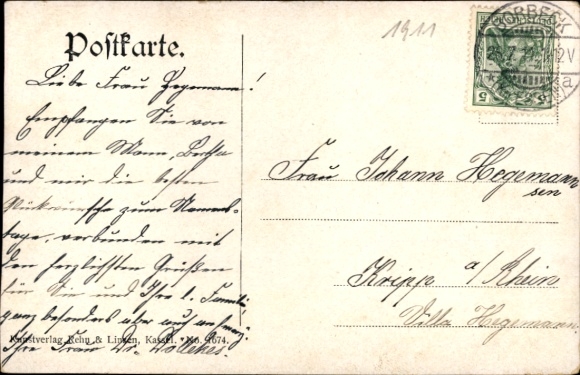 1911
KORBECK
12V
a
5 5
Postkarte.
Liebe Frau Hegemann!
Empfangen Sie von
meinem Mann,
und mir die besten
Glückwünsche zum Namens-
tage, verbunden mit
den herzlichsten Grüßen
für Sie und Ihre l. Familie,
ganz besonders aber auch
Ihre Frau Dr.
Kunstverlag Rehn & Linzen, Kassel. No. 1674.
Frau Johann Hegemann
sen
Kripp a/Rhein
Villa Hegemann.